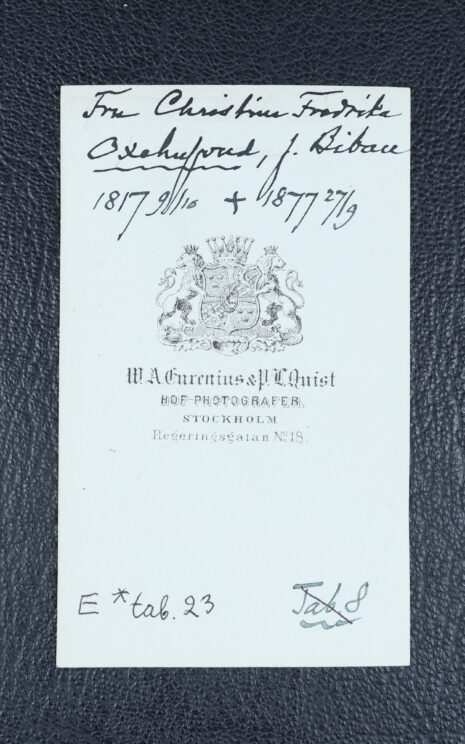 Fru Christina Fredrika
Oxehufvud, f. Bibau
1817 9/10 + 1877 27/9
W. A. Eurenius & P. L. Quist
HOF-PHOTOGRAFER,
STOCKHOLM
Regeringsgatan No 18.
E * tab. 23
Tab 8